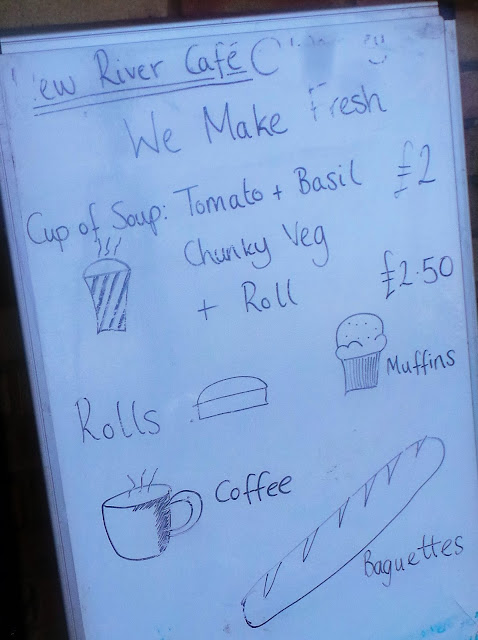 ew River Café
We Make Fresh
Cup of Soup: Tomato + Basil £2
Chunky Veg
+ Roll £2.50
Muffins
Rolls
Coffee
Baguettes